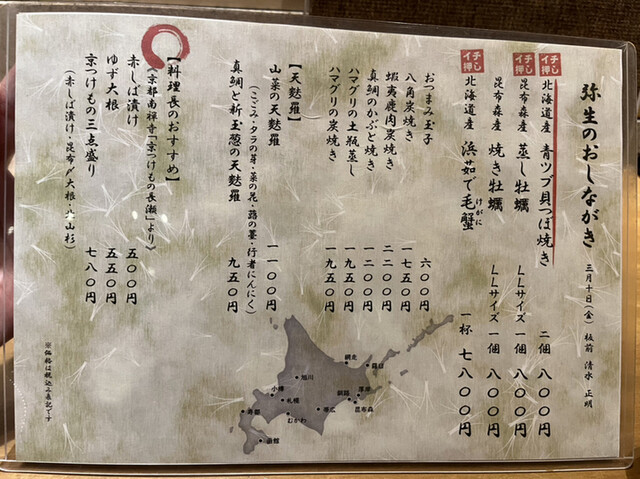 弥生のおしながき
三月十日(金) 板前 清水 正明
イチ押し
北海道産 青ツブ貝つぼ焼き 二個 八〇〇円
イチ押し
昆布森産 蒸し牡蠣 LLサイズ一個 八〇〇円
昆布森産 焼き牡蠣 LLサイズ一個 八〇〇円
イチ押し
北海道産 浜茹で毛蟹 一杯 七八〇〇円
けがに
おつまみ玉子 六〇〇円
八角炭焼き 一七五〇円
蝦夷鹿肉炭焼き 二二〇〇円
真鯛のかぶと焼き 一二〇〇円
ハマグリの土瓶蒸し 一九五〇円
ハマグリの炭焼き 一九五〇円
【天麩羅】
山菜の天麩羅 一一〇〇円
(こごみ・タラの芽・菜の花・蕗の薹・行者にんにく)
真鯛と新玉葱の天麩羅 九五〇円
【料理長のおすすめ】
(京都南禅寺「京つけもの長瀬」より)
赤しば漬け 五〇〇円
ゆず大根 五五〇円
京つけもの三点盛り 七八〇円
(赤しば漬け・昆布〆大根・北山杉)
※価格は税込み表記です
網走
羅臼
旭川
小樽
札幌
釧路
厚岸
昆布森
帯広
むかわ
函館